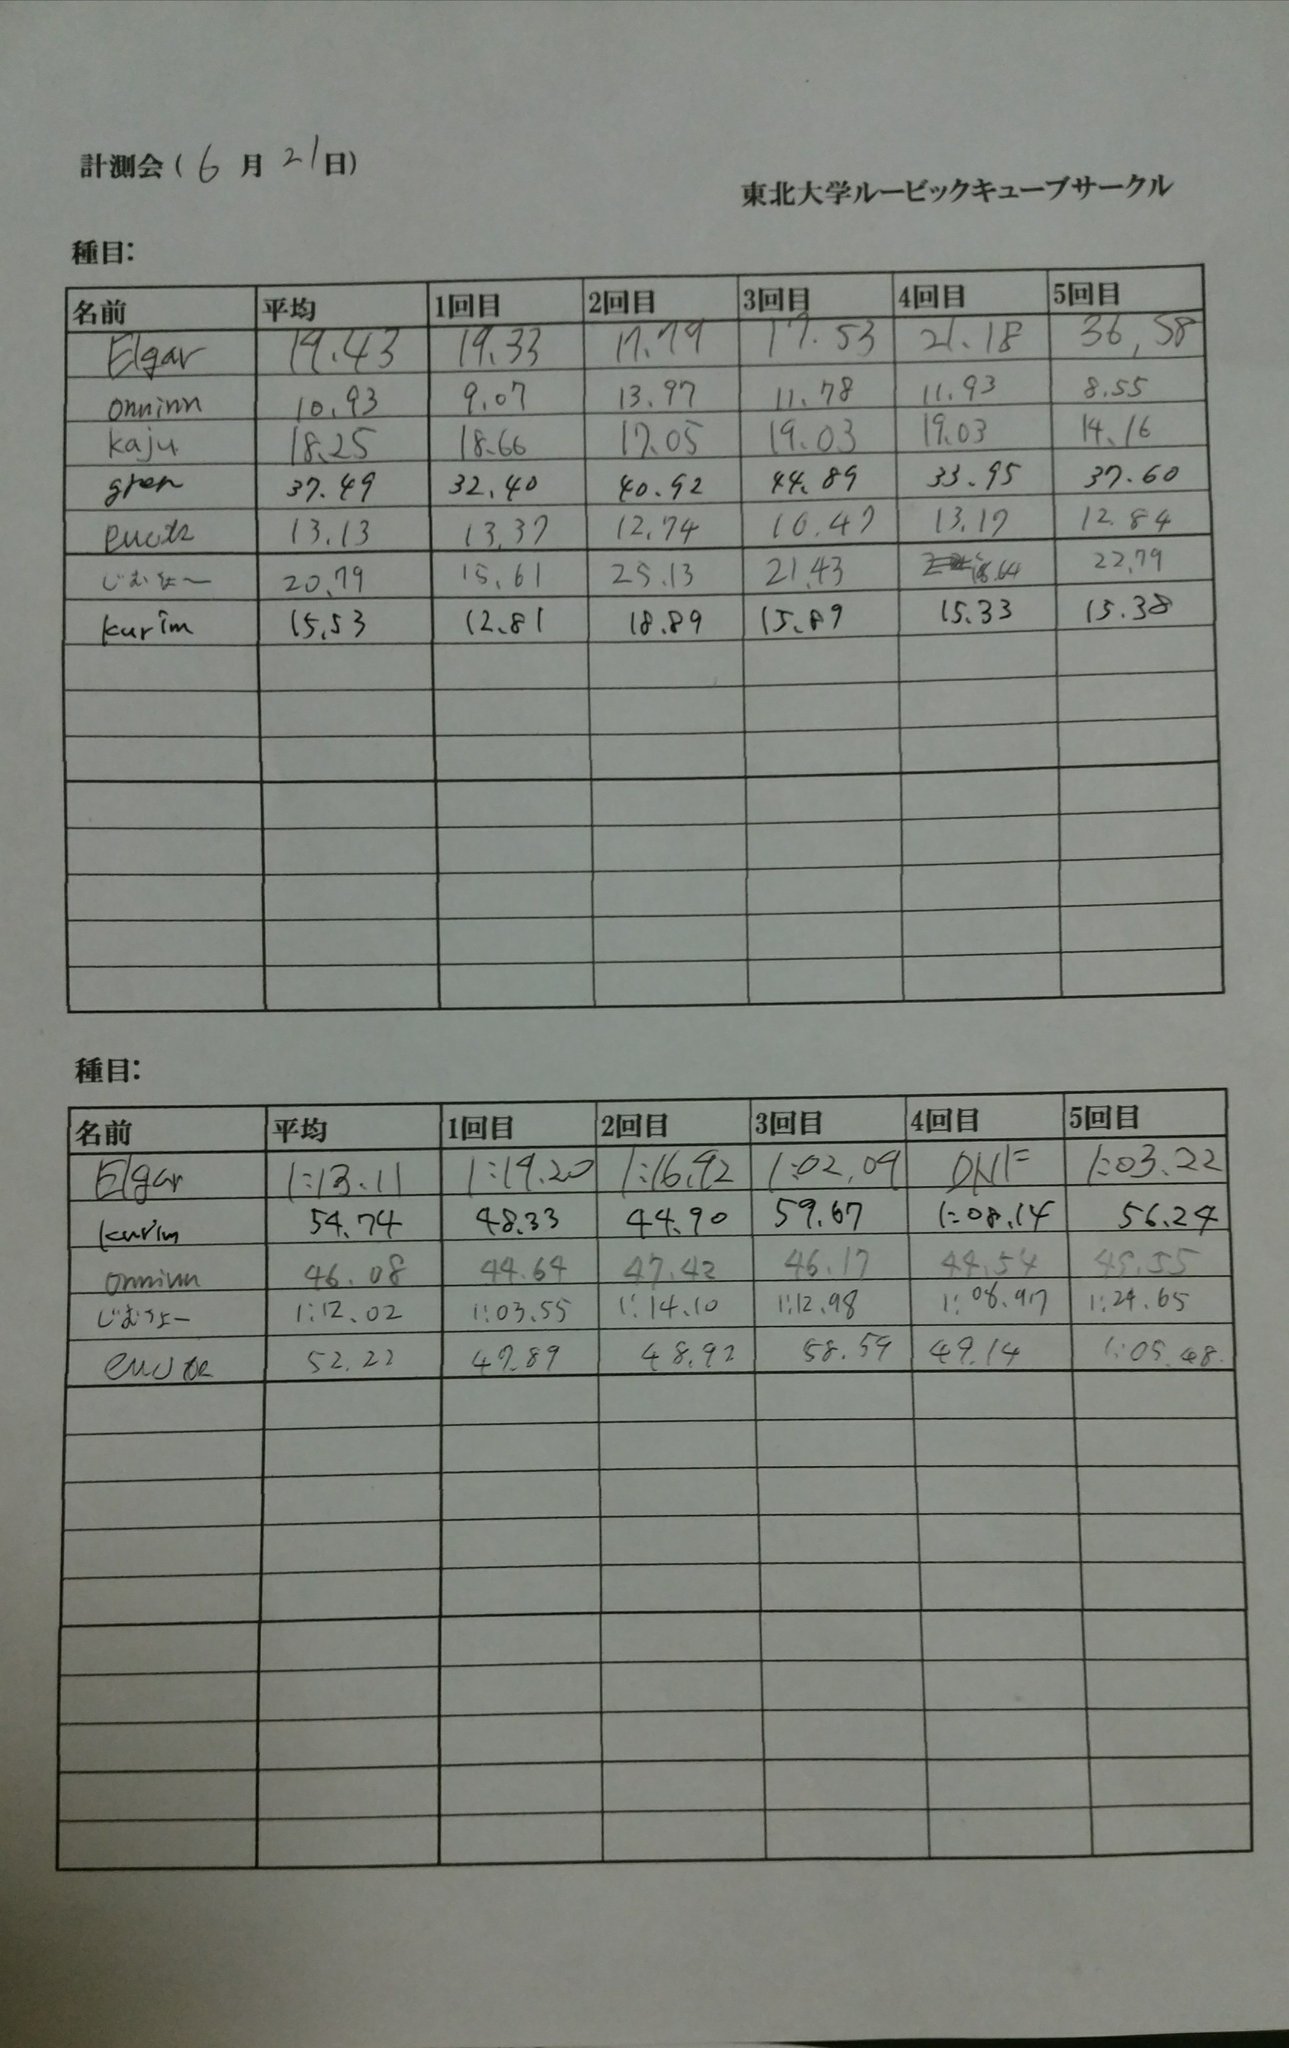 計測会(6月21日)
東北大学ルービックキューブサークル
種目:
名前 平均 1回目 2回目 3回目 4回目 5回目
Elgar 19.43 19.33 17.79 17.53 21.18 36,58
onninn 10.93 9.07 13.97 11.78 11.93 8.55
kaju 18.25 18.66 17.05 19.03 19.03 14.16
37.49 32.40 40.92 44.89 33.95 37.60
13.13 13.37 12.74 16.47 13.17 12.84
じむちょー 20.79 15.61 25.13 21.43 18.64 22.79
kurim 15.53 12.81 18.89 15.89 15.33 15.38
種目:
名前 平均 1回目 2回目 3回目 4回目 5回目
Elgar 1:13.11 1:19.20 1:16.92 1:02.09 DNF 1:03.22
kurim 54.74 48.33 44.90 59.67 1:08.14 56.24
onninn 46.08 44.64 47.42 46.17 44.54 45.55
じむちょー 1:12.02 1:03.55 1:14.10 1:12.98 1:08.97 1:24.65
52.22 47.89 48.92 58.59 49.14 1:05.48